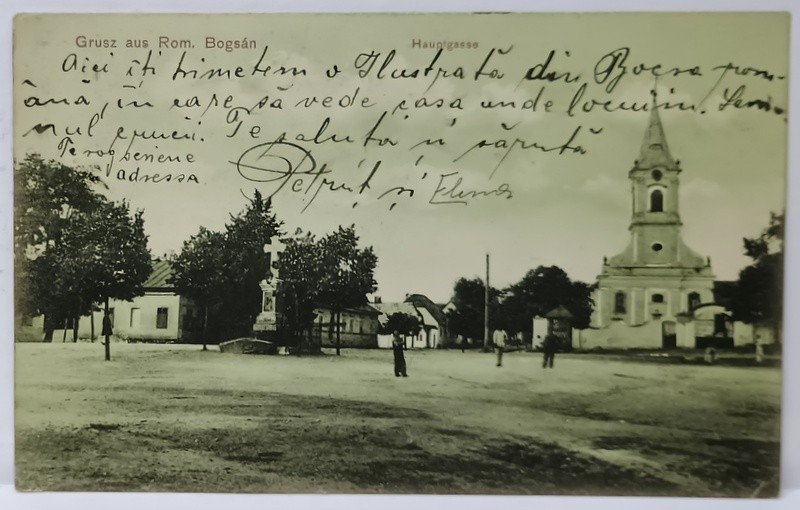 Grusz aus Rom. Bogsán
Hauptgasse
Aici îți trimetem o Ilustrată din Bocșa rom-
ână, în care să vede casa unde locuim. Sem-
nul crucii. Te salută și sărută
Te rog scriene
adressa
Petruț și Elena